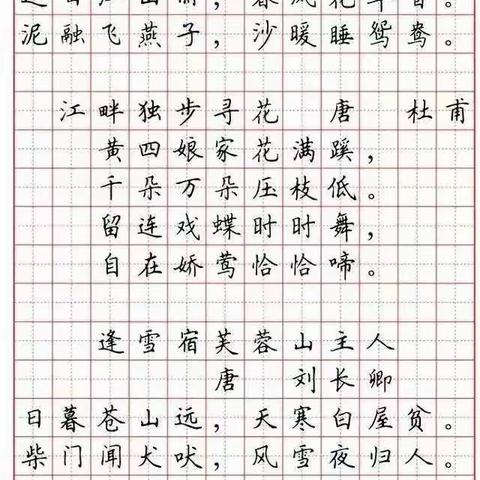 泥融飞燕子，沙暖睡鸳鸯。
江畔独步寻花 唐 杜甫
黄四娘家花满蹊，
千朵万朵压枝低。
留连戏蝶时时舞，
自在娇莺恰恰啼。
逢雪宿芙蓉山主人
唐 刘长卿
日暮苍山远，天寒白屋贫。
柴门闻犬吠，风雪夜归人。